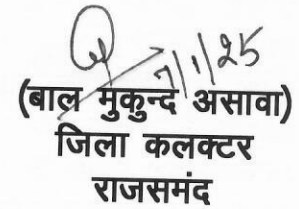 7/1/25
(बाल मुकुन्द असावा)
जिला कलक्टर
राजसमंद